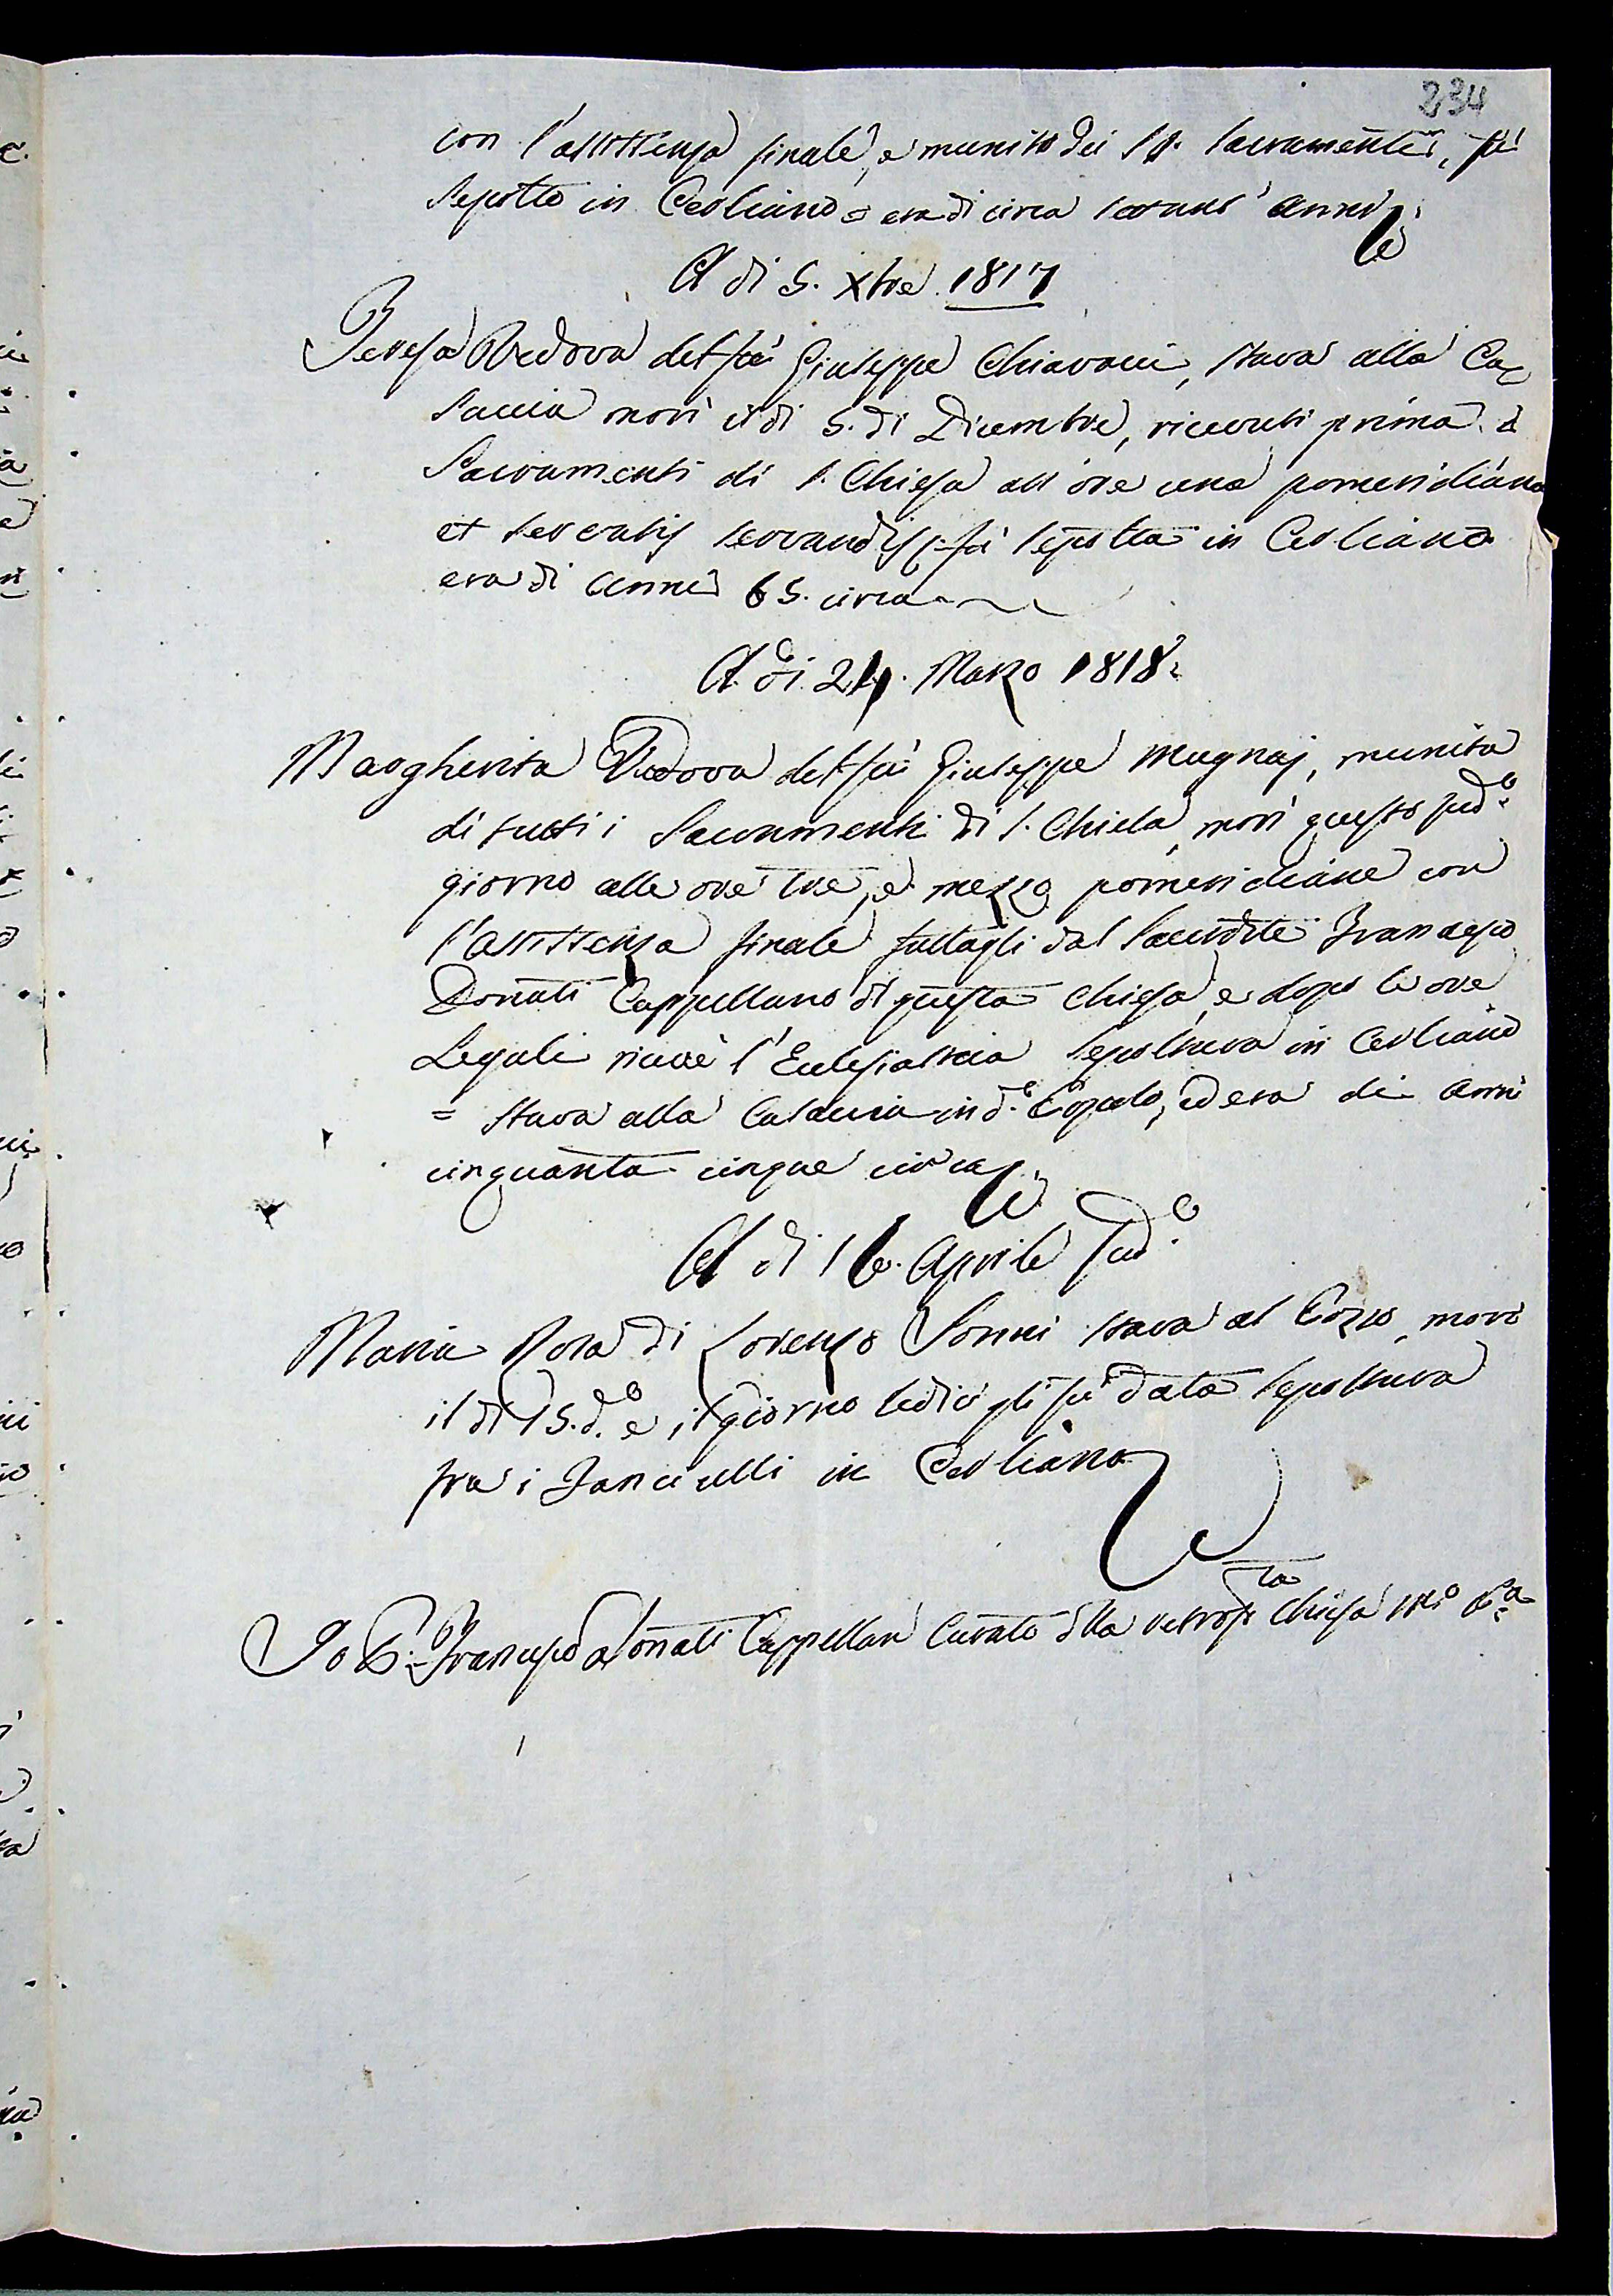 234
con l'assistenza finale, e munito dei SS. Sacramenti, fù
sepolto in Cevliano = era di circa anni
A di 5. Xbre 1817
Teresa Vedova del fù Giuseppe Chiavacci, stava alla Ca=
saccia morì il dì 5. di Dicembre, ricevuti prima i
Sacramenti di S. Chiesa all'ore una pomeridiana
et servatis servandis fù sepolta in Cevliano
era di anni 65. circa
A di 24. Marzo 1818
Margherita Vedova del fù Giuseppe Mugnaj, munita
di tutti i Sacramenti di S. Chiesa, morì questo sud.o
giorno alle ore tre, e mezzo pomeridiane con
l'assistenza finale fattagli dal Sacerdote Francesco
Donati Cappellano di questa Chiesa, e dopo le ore
Legali ricevè l'Eclesiastica sepoltura in Cevliano
= stava alla Casaccia in d.o Popolo, ed era di anni
cinquanta cinque circa
A di 16. Aprile sud.o
Maria Rosa di Lorenzo Sonni stava al Pozzo, morì
il dì 15. d.o e il giorno sedici gli fù data sepoltura
fra i Fanciulli in Cevliano
Io P. Francesco Donati Cappellan Curato della Chiesa